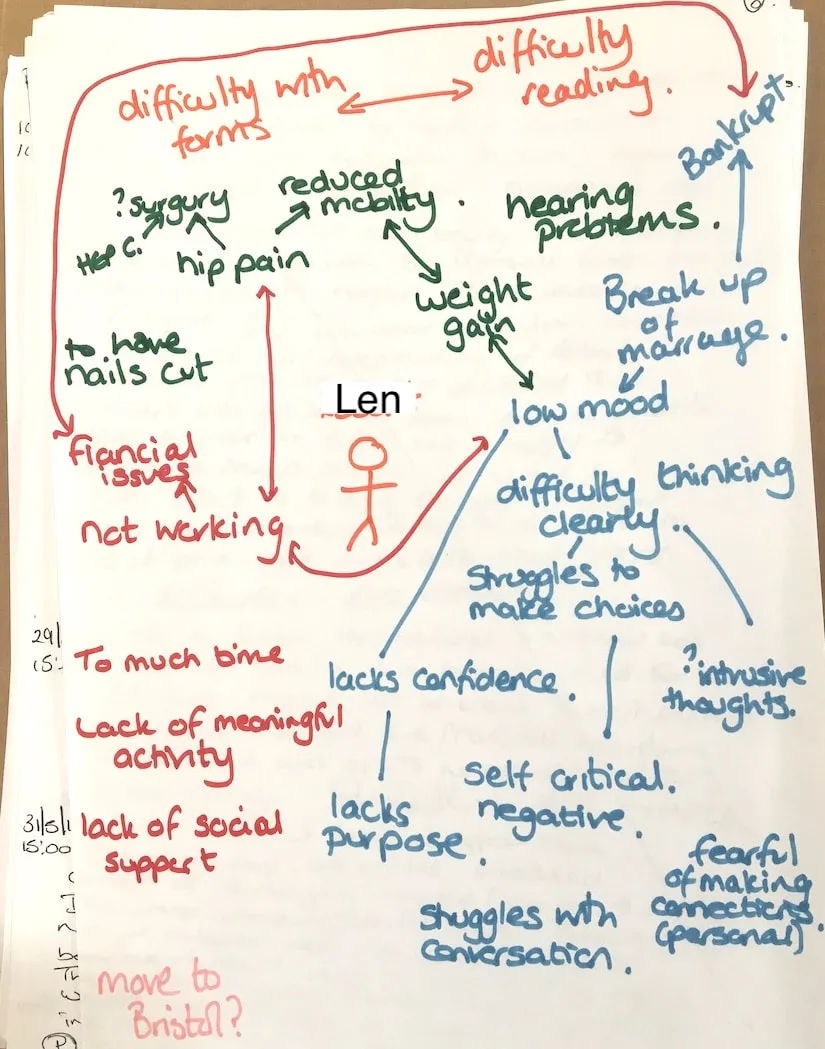 difficulty with
forms
difficulty
reading.
Bankrupt
? surgury
Hep C.
hip pain
reduced
mobility.
hearing
problems.
weight
gain
Break up
of
marrage.
to have
nails cut
Len
low mood
fiancial
issues
not working
difficulty thinking
clearly.
Struggles to
make choices
29/
15:
To much time
lacks confidence.
? intrusive
thoughts.
Lack of meaningful
activity
Self critical.
negative.
lacks
purpose.
31/5/1
15:00
lack of social
support
fearful
of making
connections.
(personal)
Struggles with
conversation.
move to
Bristol?